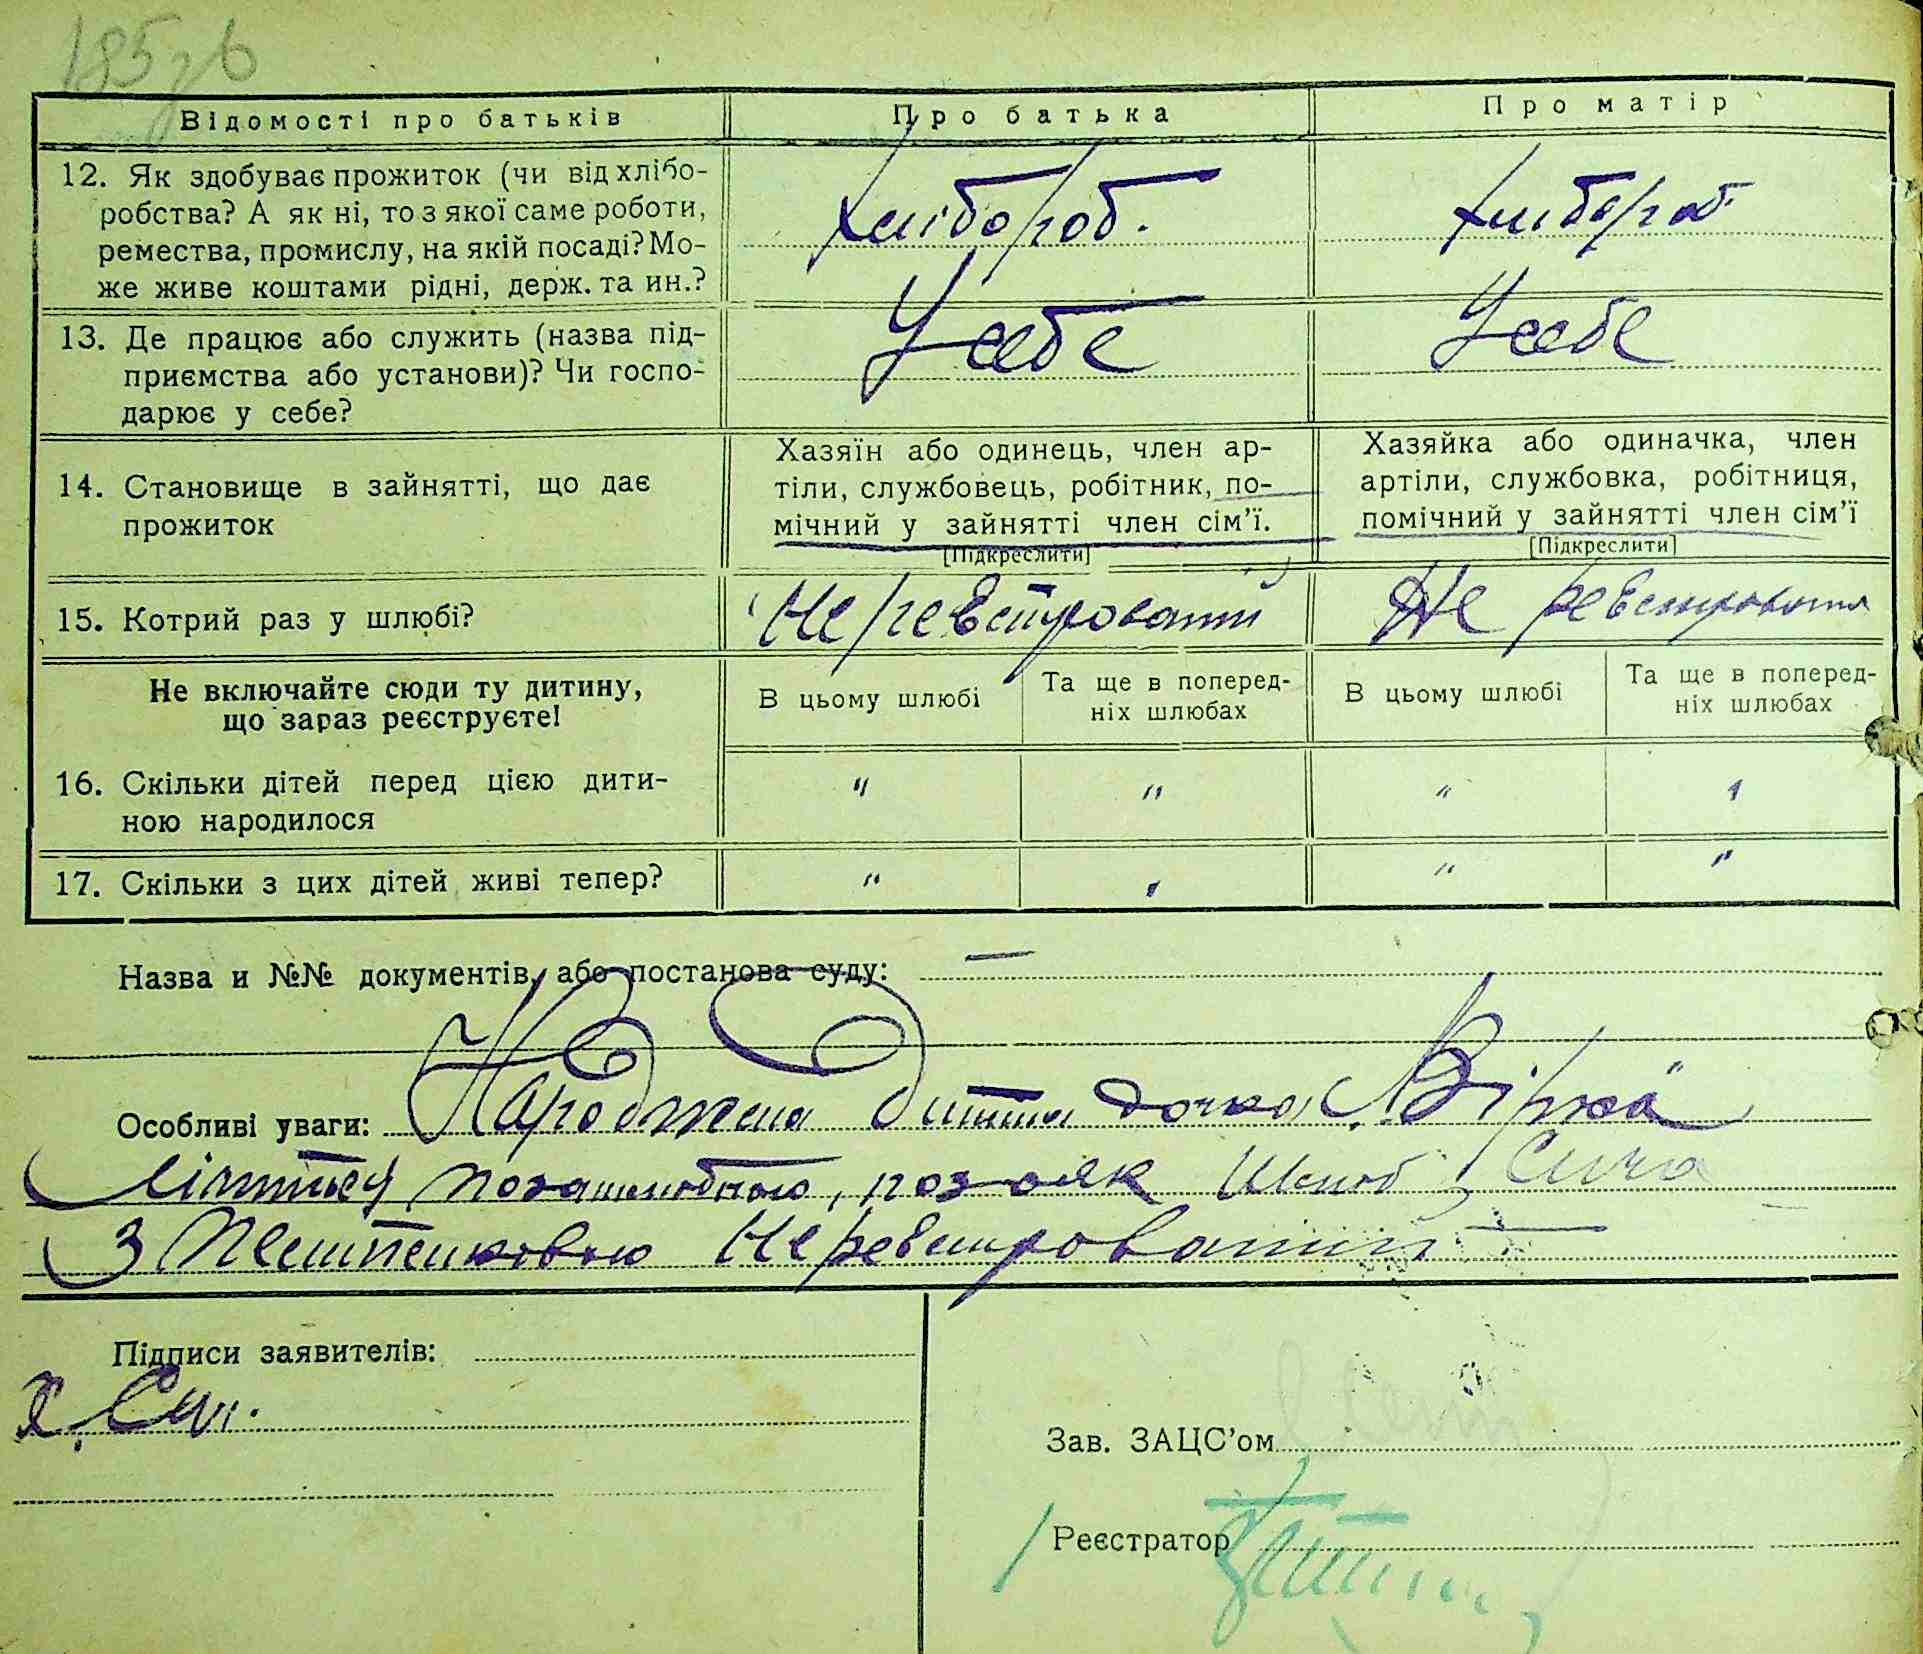 185зв
Відомості про батьків
Про батька
Про матір
12. Як здобуває прожиток (чи від хлібо-
робства? А як ні, то з якої саме роботи,
ремества, промислу, на якій посаді? Мо-
же живе коштами рідні, держ. та ин.?
Хлібороб.
Хлібороб
13. Де працює або служить (назва під-
приємства або установи)? Чи госпо-
дарює у себе?
У себе
У себе
14. Становище в зайнятті, що дає
прожиток
Хазяїн або одинець, член ар-
тіли, службовець, робітник, по-
мічний у зайнятті член сім'ї.
[Підкреслити]
Хазяйка або одиначка, член
артіли, службовка, робітниця,
помічний у зайнятті член сім'ї
[Підкреслити]
15. Котрий раз у шлюбі?
Не реєстрований
Не реєстрований
Не включайте сюди ту дитину,
що зараз реєструєте!
В цьому шлюбі
Та ще в поперед-
ніх шлюбах
В цьому шлюбі
Та ще в поперед-
ніх шлюбах
16. Скільки дітей перед цією дити-
ною народилося
" " " "
17. Скільки з цих дітей живі тепер?
" " " "
Назва и №№ документів, або постанова суду: —
Особливі уваги: Народжена дитина дочка
лічиться позашлюбною, позаяк Шлюб Сича
з не реєстрований —
Підписи заявителів:
Х. Сич.
Зав. ЗАЦС'ом
Реєстратор